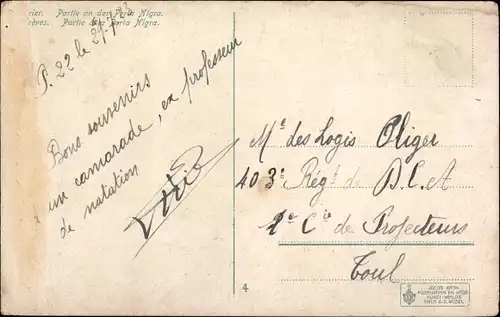 rier. Partie an der Porta Nigra.
rèves. Partie à la Porta Nigra.
P. 22 le 27-7-
Bons souvenirs
un camarade, ex professeur
de natation
Mé des Logis Oliger
403e Régt de D.C.A
1e Cie de Projecteurs
Toul
4
JACOB KROH
TRIER A. D. MOSEL